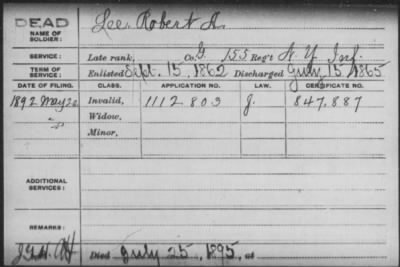 DEAD
NAME OF SOLDIER:
Lee, Robert A.
SERVICE:
Late rank, Co. G, 155 Reg't N. Y. Inf.
TERM OF SERVICE:
Enlisted Sept. 15, 1862 Discharged July 15, 1865
DATE OF FILING. CLASS. APPLICATION NO. LAW. CERTIFICATE NO.
1892 May 28 Invalid, 1112.803 J. 847.887
Widow,
Minor,
ADDITIONAL SERVICES:
REMARKS:
Died July 25, 1895, at